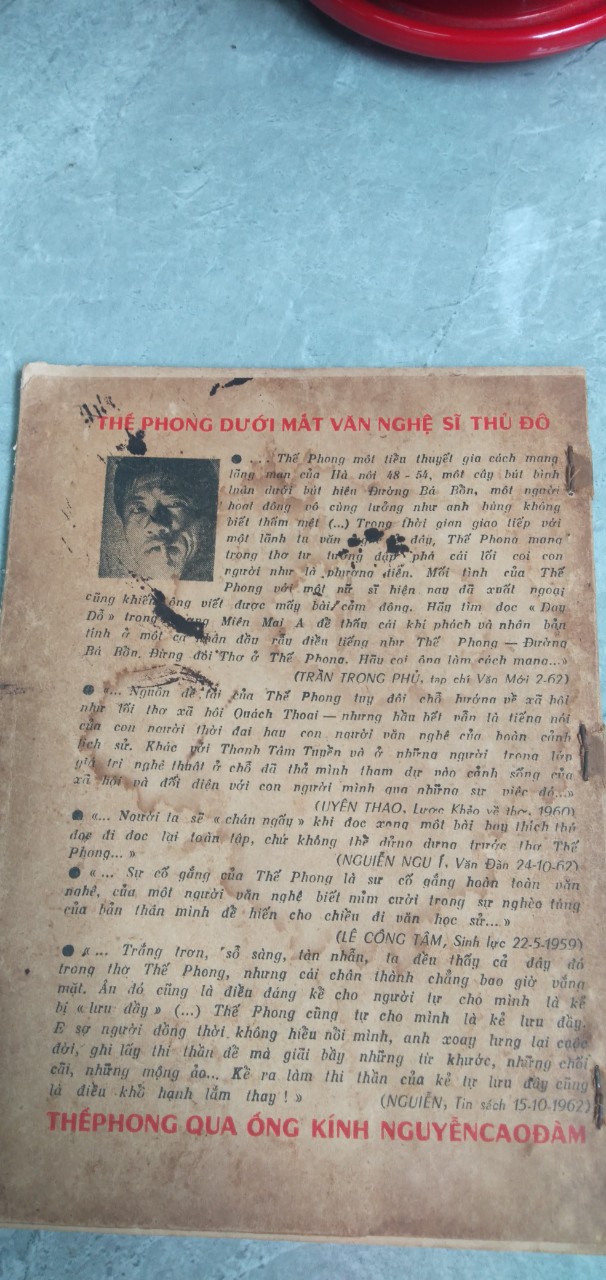 THẾ PHONG DƯỚI MẮT VĂN NGHỆ SĨ THỦ ĐÔ
... Thế Phong một tiểu thuyết gia cách mạng
lãng mạn của Hà nội 48 - 54, một cây bút bình
luận dưới bút hiệu Đường Bá Bổn, một người
hoạt động vô cùng lưỡng như anh hùng không
biết thấm mệt (...) Trong thời gian giao tiếp với
một lãnh tụ văn đây, Thế Phong mang
trong thơ tư tưởng đạp phá cái lối coi con
người như là phương tiện. Mối tình của Thế
Phong với một nữ sĩ hiện nay đã xuất ngoại
cũng khiến ông viết được mấy bài cảm động. Hãy tìm đọc « Đay
Đỏ » trong Miên Mai A để thấy cái khí phách và nhân bản
tính ở một cá nhân đầu rầu điển tiếng như Thế Phong — Đường
Bá Bổn. Đừng đòi Thơ ở Thế Phong. Hãy coi ông làm cách mạng...»
(TRẦN TRỌNG PHỦ, tạp chí Văn Mới 2-62)
«... Nguồn đề tài của Thế Phong tuy đôi chỗ hướng về xã hội
như lối thơ xã hội Quách Thoại — nhưng hầu hết vẫn là tiếng nói
của con người thời đại hay con người văn nghệ của hoàn cảnh
lịch sử. Khác với Thanh Tâm Tuyền và ở những người trong lớn
giá trị nghệ thuật ở chỗ đã thả mình tham dự vào cảnh sống của
xã hội và đối diện với con người mình qua những sự việc đó...»
(UYÊN THAO, Lược Khảo về thơ, 1960)
«... Người ta sẽ « chán ngấy » khi đọc xong một bài hay thích thú
đọc đi đọc lại toàn tập, chứ không thể dửng dưng trước thơ Thế
Phong... »
(NGUIỄN NGU Í, Văn Đàn 24-10-62)
« ... Sự cố gắng của Thế Phong là sự cố gắng hoàn toàn văn
nghệ, của một người văn nghệ biết mỉm cười trong sự nghèo túng
của bản thân mình để hiến cho chiều đi văn học sử... »
(LÊ CÔNG TÂM, Sinh lực 22-5-1959)
« ... Trắng trơn, sỗ sàng, tàn nhẫn, ta đều thấy cả đây đó
trong thơ Thế Phong, nhưng cái chân thành chẳng bao giờ vắng
mặt. Âu đó cũng là điều đáng kể cho người tự cho mình là kẻ
bị « lưu đầy » (...) Thế Phong cũng tự cho mình là kẻ lưu đầy.
E sợ người đồng thời không hiểu nổi mình, anh xoay lưng lại cuộc
đời, ghi lấy thi thần để mà giãi bầy những từ khước, những chối
cãi, những mộng ảo... Kể ra làm thi thần của kẻ tự lưu đầy cũng
là điều khổ hạnh lắm thay ! »
(NGUIỄN, Tin sách 15-10-1962)
THẾPHONG QUA ỐNG KÍNH NGUYỄNCAOĐÀM